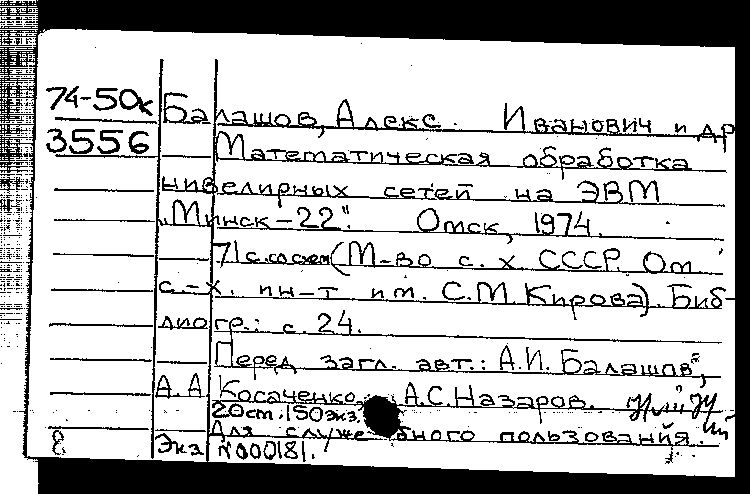 74-50к Балашов, Алекс. Иванович и др
3556 Математическая обработка
нивелирных сетей на ЭВМ
„Минск-22". Омск, 1974.
71 с. со схем (М-во с. х СССР. Ом.
с.-х. ин-т им. С.М. Кирова). Биб-
лиогр.: с. 24.
Перед загл. авт.: А.И. Балашов,
А. А Косаченко, А.С. Назаров.
20 cm. 150 экз.
Для служебного пользования.
8 Экз N000181.